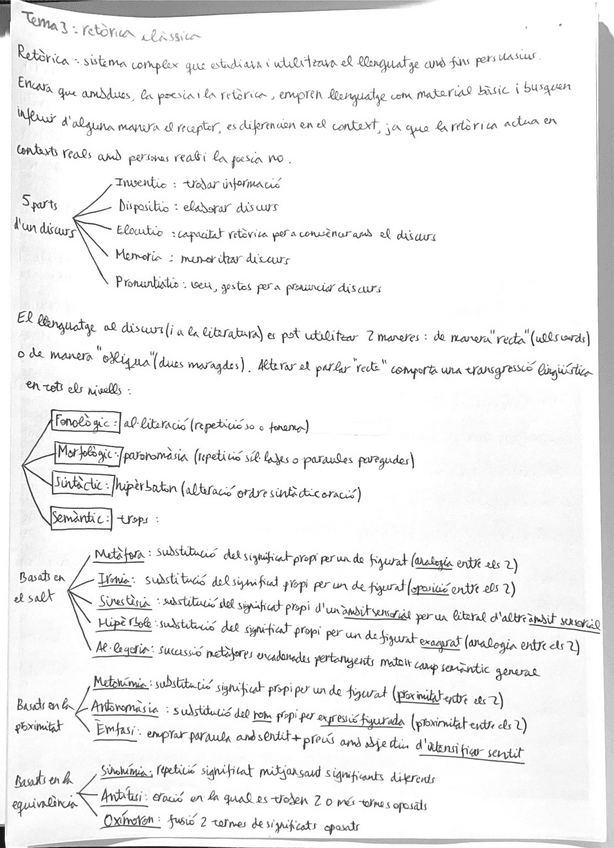 Tema 3: retòrica clàssica
Retòrica: sistema complex que estudiava i utilitzava el llenguatge amb fins persuasius.
Encara que ambdues, la poesia i la retòrica, empren llenguatge com material bàsic i busquen
influir d'alguna manera el receptor, es diferencien en el context, ja que la retòrica actua en
contexts reals amb persones reals i la poesia no.
5 parts d'un discurs
Inventio: trobar informació
Dispositio: elaborar discurs
Elocutio: capacitat retòrica per a convèncer amb el discurs
Memoria: memoritzar discurs
Pronuntiatio: veu, gestos per a pronunciar discurs
El llenguatge al discurs (i a la literatura) es pot utilitzar 2 maneres: de manera "recta" (ulls verds)
o de manera "obliqua" (dues maragdes). Alterar el parlar "recte" comporta una transgressió lingüística
en tots els nivells:
Fonològic: al·literació (repetició so o fonema)
Morfològic: paronomàsia (repetició síl·labes o paraules paregudes)
Sintàctic: hipèrbaton (alteració ordre sintàctic oració)
Semàntic: trops:
Basats en el salt
Metàfora: substitució del significat propi per un de figurat (analogia entre els 2)
Ironia: substitució del significat propi per un de figurat (oposició entre els 2)
Sinestèsia: substitució del significat propi d'un àmbit sensorial per un literal d'altre àmbit sensorial
Hipèrbole: substitució del significat propi per un de figurat exagerat (analogia entre els 2)
Al·legoria: successió metàfores encadenades pertanyents mateix camp semàntic general
Basats en la proximitat
Metonímia: substitució significat propi per un de figurat (proximitat entre els 2)
Antonomàsia: substitució del nom propi per expressió figurada (proximitat entre els 2)
Èmfasi: emprar paraula amb sentit + precís amb objectiu d'intensificar sentit
Basats en la equivalència
Sinonímia: repetició significat mitjançant significants diferents
Antítesi: oració en la qual es troben 2 o més termes oposats
Oxímoron: fusió 2 termes de significats oposats